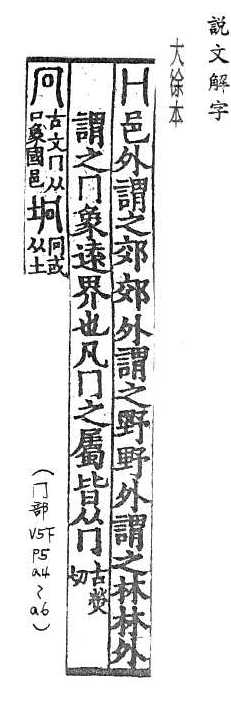 說文解字
大徐本
冂邑外謂之郊郊外謂之野野外謂之林林外
謂之冂象遠界也凡冂之屬皆从冂古熒切
冋古文冂从口象國邑坰冋或从土
(冂部V5下P5a4~a6)